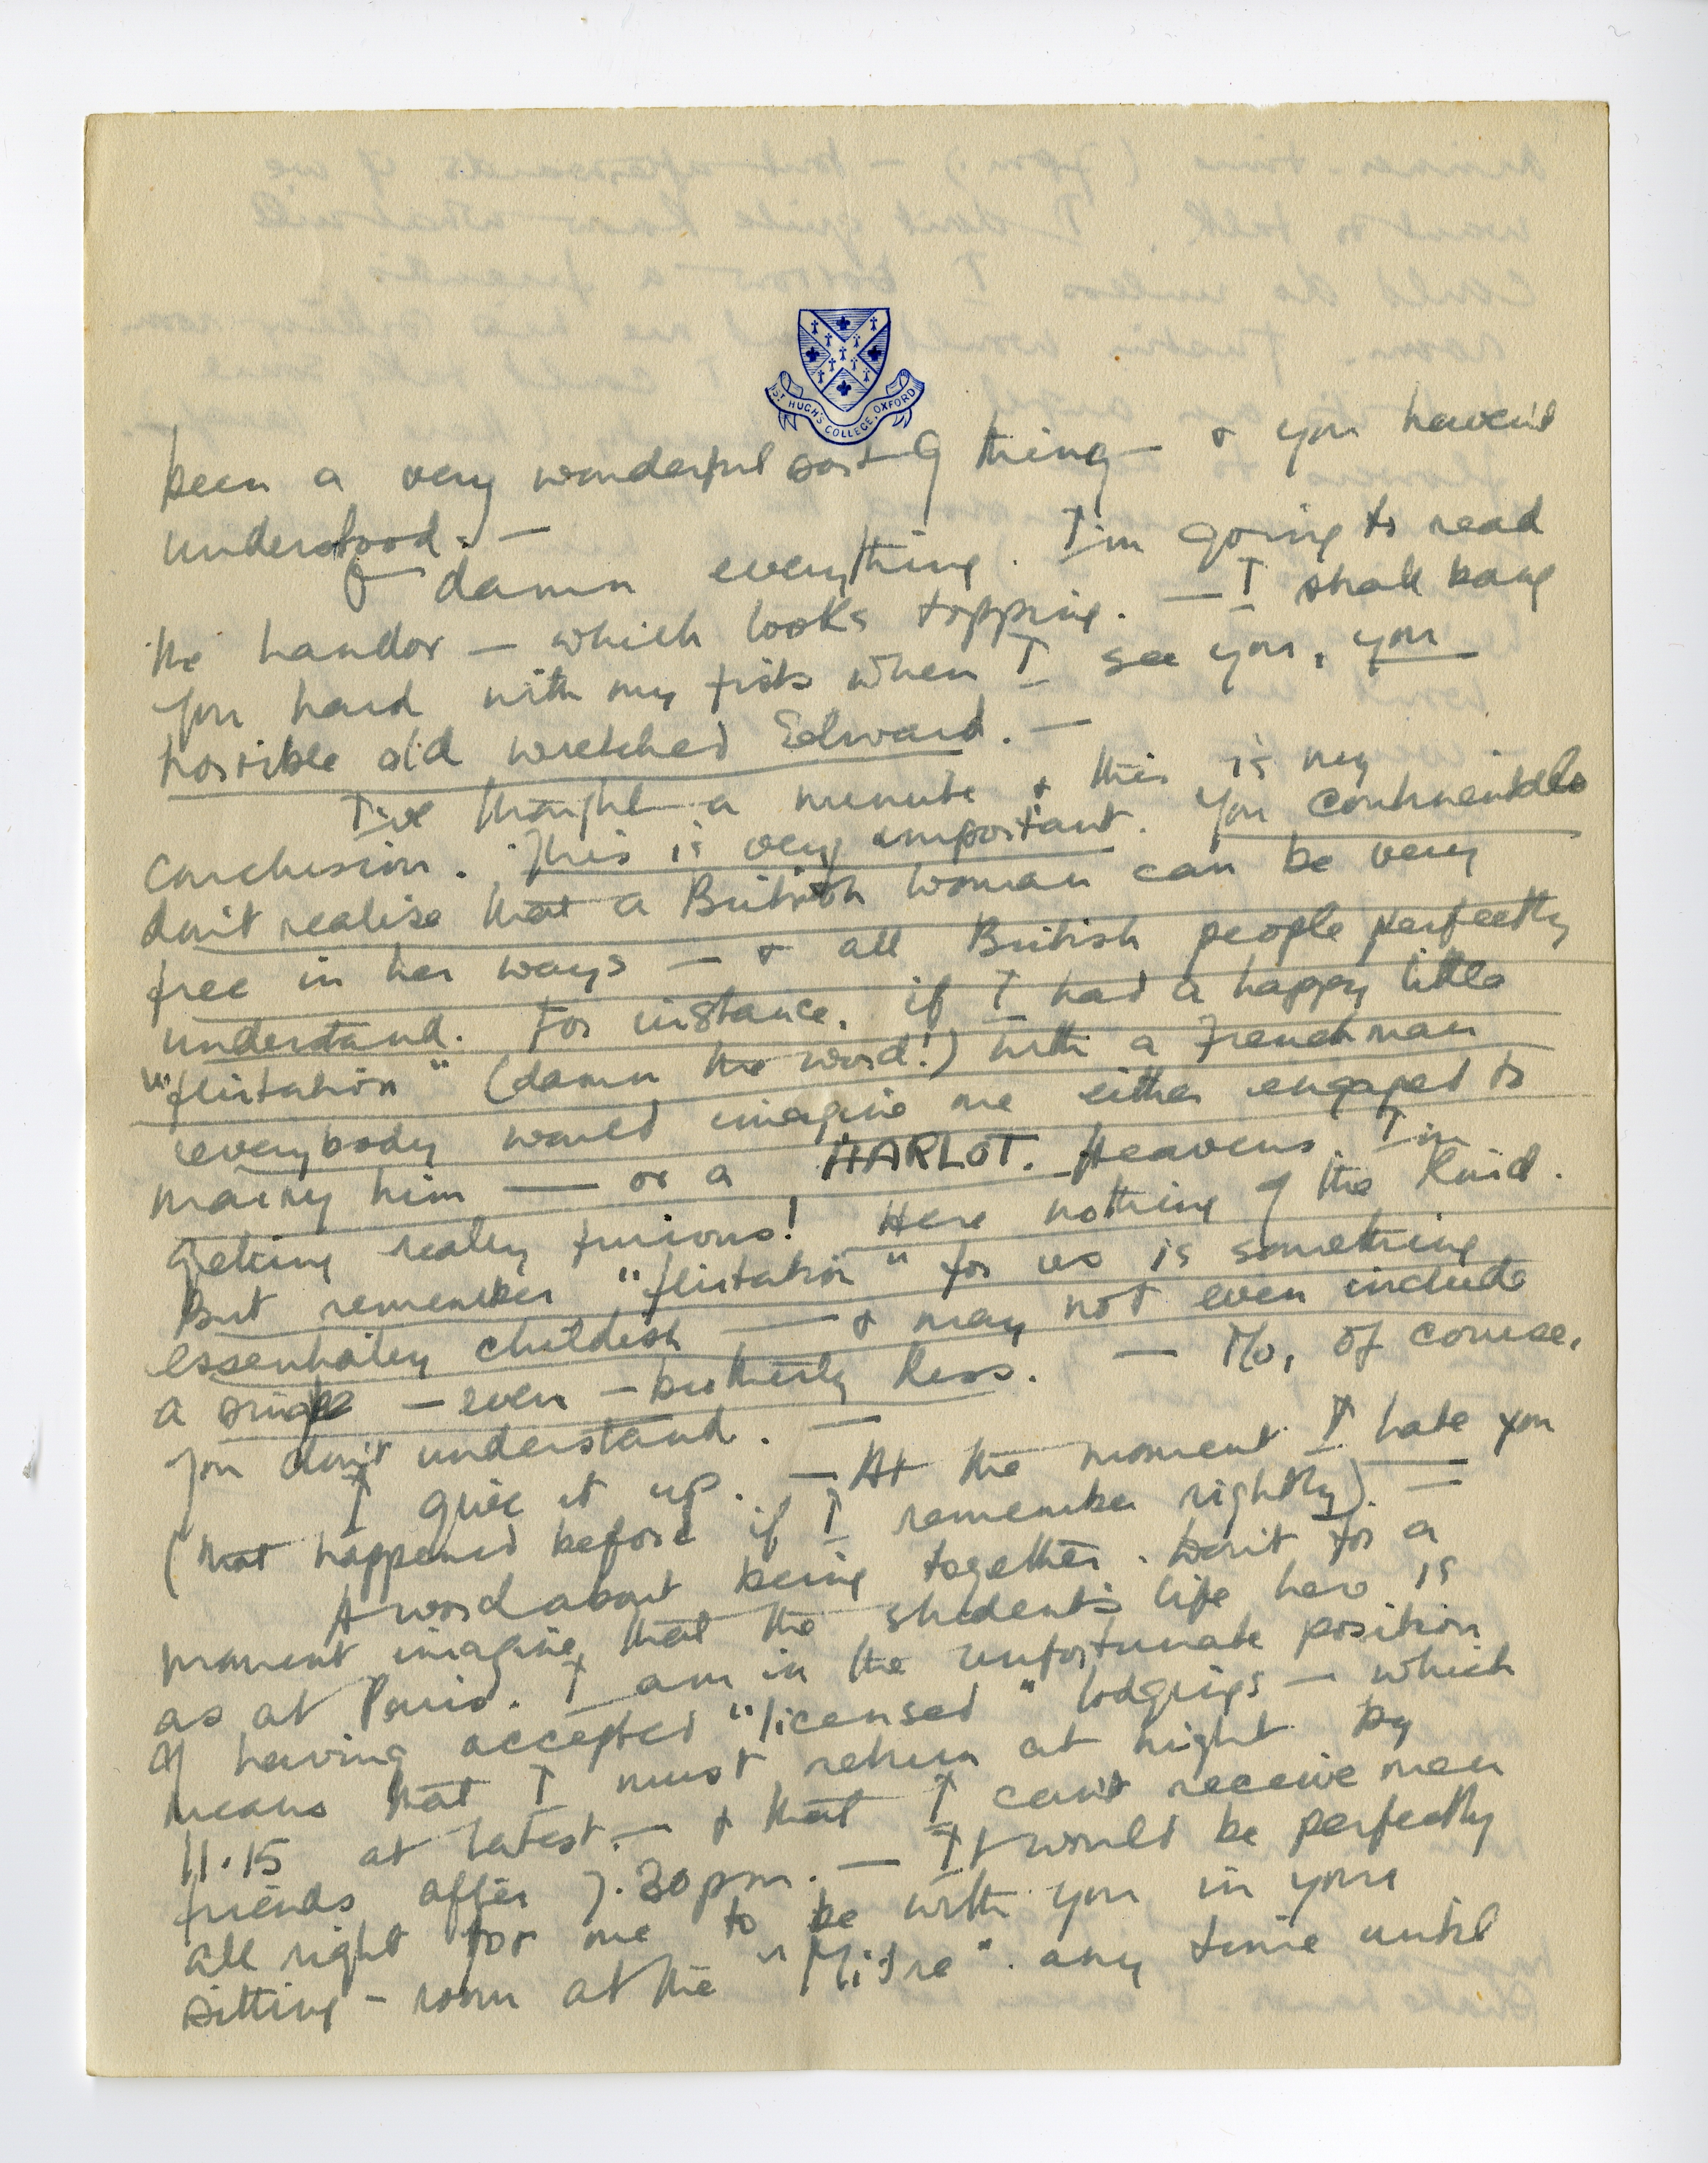 ST HUGH'S COLLEGE, OXFORD
been a very wonderful sort of thing — & you haven't
understood. —
O damn everything. I'm going to read
the — which looks topping. — I shall bang
you hard with my fists when I see you, you
horrible old wretched Edward. —
I've thought a minute & this is my
conclusion. This is very important. You continentals
don't realise that a British woman can be very
free in her ways — & all British people perfectly
understand. For instance, if I had a happy little
"flirtation" (damn the word!) with a Frenchman
everybody would imagine me either engaged to
marry him — or a HARLOT. Heavens. I'm
getting really furious! Here nothing of the kind.
But remember "flirtation" for us is something
essentially childish — & may not even include
a single — even — brotherly kiss. — No, of course,
you don't understand. —
I give it up. — At the moment I hate you
(that happened before if I remember rightly). —
A word about being together. Don't for a
moment imagine that the student's life here is
as at Paris. I am in the unfortunate position
of having accepted "licensed" lodgings — which
means that I must return at night by
11.15 at latest. — & that I can't receive men
friends after 7.30 pm. — It would be perfectly
all right for me to be with you in your
sitting-room at the "Mitre". any time until